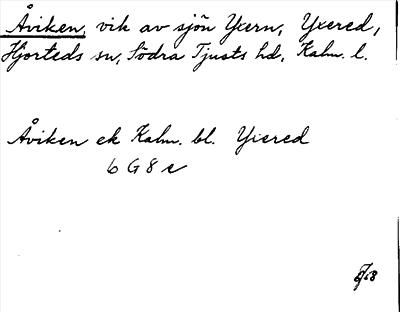 Åviken, vik av sjön Yxern, Yxered,
Hjorteds sn, Södra Tjusts hd, Kalm. l.
Åviken ek Kalm. bl. Yxered
6 G 8 c